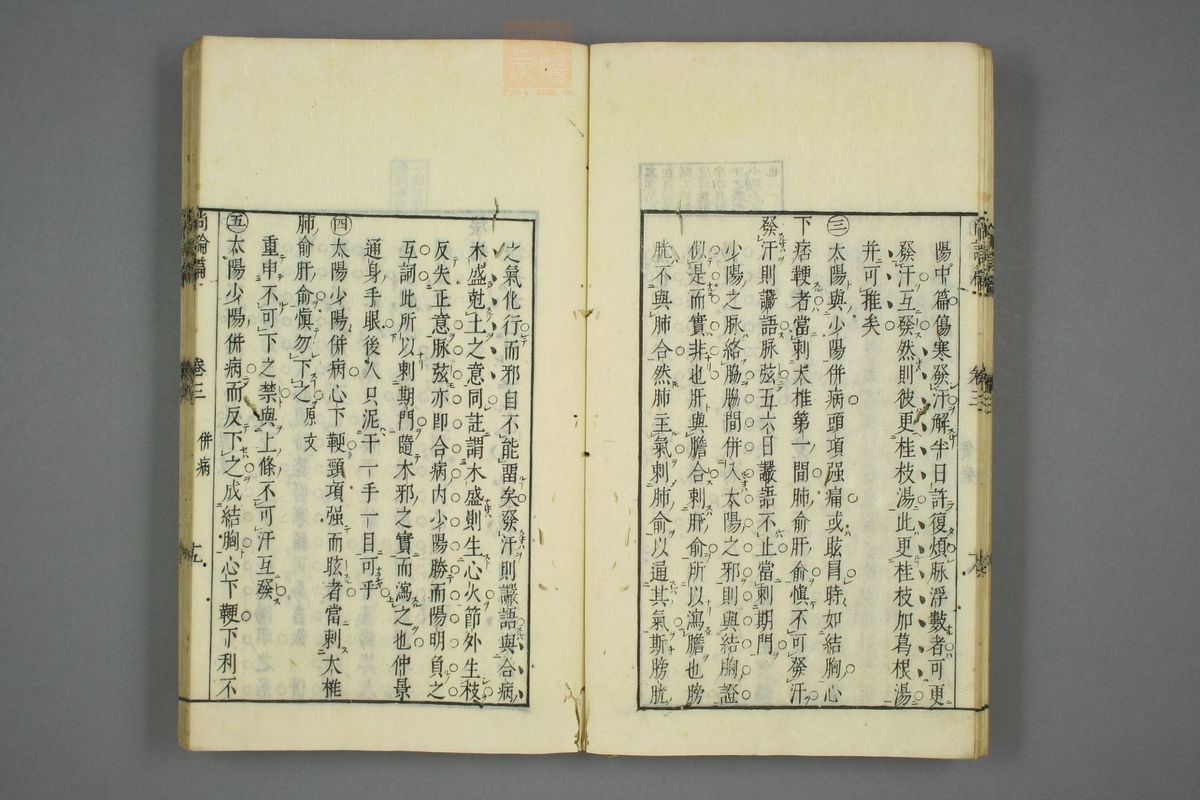 陽中篇傷寒發汗解半日許復煩脉浮數者可更
發汗互發然則彼更桂枝湯此更桂枝加葛根湯
并可推矣
㊂太陽與少陽併病頭項强痛或眩冒時如結胸心
下痞鞕者當刺大椎第一間肺俞肝俞愼不可發汗
發汗則讝語脉弦五六日讝語不止當刺期門
少陽之脉絡脇脇間併入太陽之邪則與結胸證
似是而實非也肝與膽合刺肝俞所以瀉膽也膀
胱不與肺合然肺主氣刺肺俞以通其氣斯膀胱
之氣化行而邪自不能留矣發汗則讝語與合病
木盛尅土之意同註謂木盛則生心火節外生枝
反失正意脉弦亦即合病内少陽勝而陽明負之
互詞此所以刺期門隨木邪之實而瀉之也仲景
通身手眼後人只泥千一手一目可乎
㊃太陽少陽併病心下鞕頸項强而眩者當刺大椎
肺俞肝俞愼勿下之原文
重申不可下之禁與上條不可汗互發
㊄太陽少陽併病而反下之成結胸心下鞕下利不
尚論篇 卷三 併病 十九